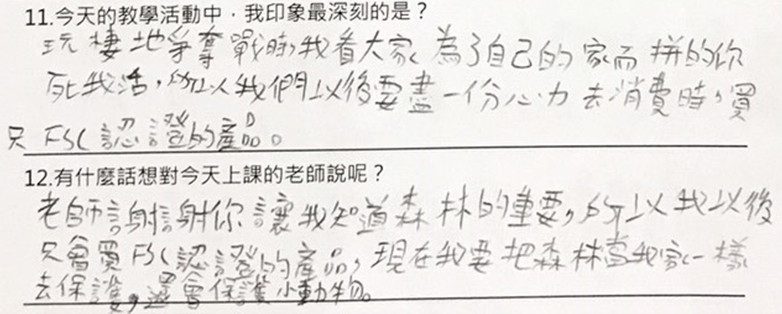 11.今天的教學活動中，我印象最深刻的是？
玩棲地爭奪戰時，我看大家為了自己的家而拼的你
死我活，所以我們以後要盡一份心力去消費時，買
只FSC認證的產品。
12.有什麼話想對今天上課的老師說呢？
老師謝謝你讓我知道森林的重要，所以我以後
只會買FSC認證的產品，現在我要把森林當我家一樣
去保護，還會保護小動物。